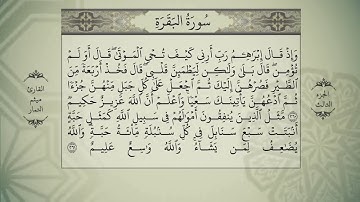 سُورَةُ البَقَرَةِ
وَإِذْ قَالَ إِبْرَٰهِـۧمُ رَبِّ أَرِنِى كَيْفَ تُحْىِ ٱلْمَوْتَىٰ قَالَ أَوَلَمْ
تُؤْمِن قَالَ بَلَىٰ وَلَٰكِن لِّيَطْمَئِنَّ قَلْبِى قَالَ فَخُذْ أَرْبَعَةً مِّنَ
ٱلطَّيْرِ فَصُرْهُنَّ إِلَيْكَ ثُمَّ ٱجْعَلْ عَلَىٰ كُلِّ جَبَلٍ مِّنْهُنَّ جُزْءًا
ثُمَّ ٱدْعُهُنَّ يَأْتِينَكَ سَعْيًا وَٱعْلَمْ أَنَّ ٱللَّهَ عَزِيزٌ حَكِيمٌ
٢٦٠ مَّثَلُ ٱلَّذِينَ يُنفِقُونَ أَمْوَٰلَهُمْ فِى سَبِيلِ ٱللَّهِ كَمَثَلِ حَبَّةٍ
أَنۢبَتَتْ سَبْعَ سَنَابِلَ فِى كُلِّ سُنۢبُلَةٍ مِّا۟ئَةُ حَبَّةٍ وَٱللَّهُ
يُضَٰعِفُ لِمَن يَشَآءُ وَٱللَّهُ وَٰسِعٌ عَلِيمٌ ٢٦١
الجزء
الثالث
القارئ
ميثم
التمار